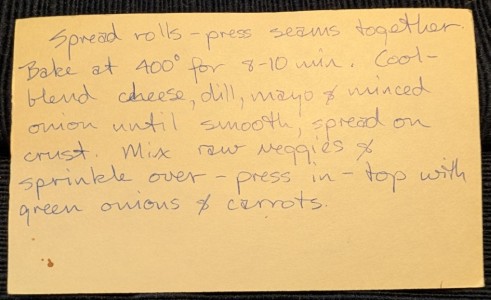 Spread rolls - press seams together.
Bake at 400° for 8-10 min. Cool -
blend cheese, dill, mayo & minced
onion until smooth, spread on
crust. Mix raw veggies &
sprinkle over - press in - top with
green onions & carrots.